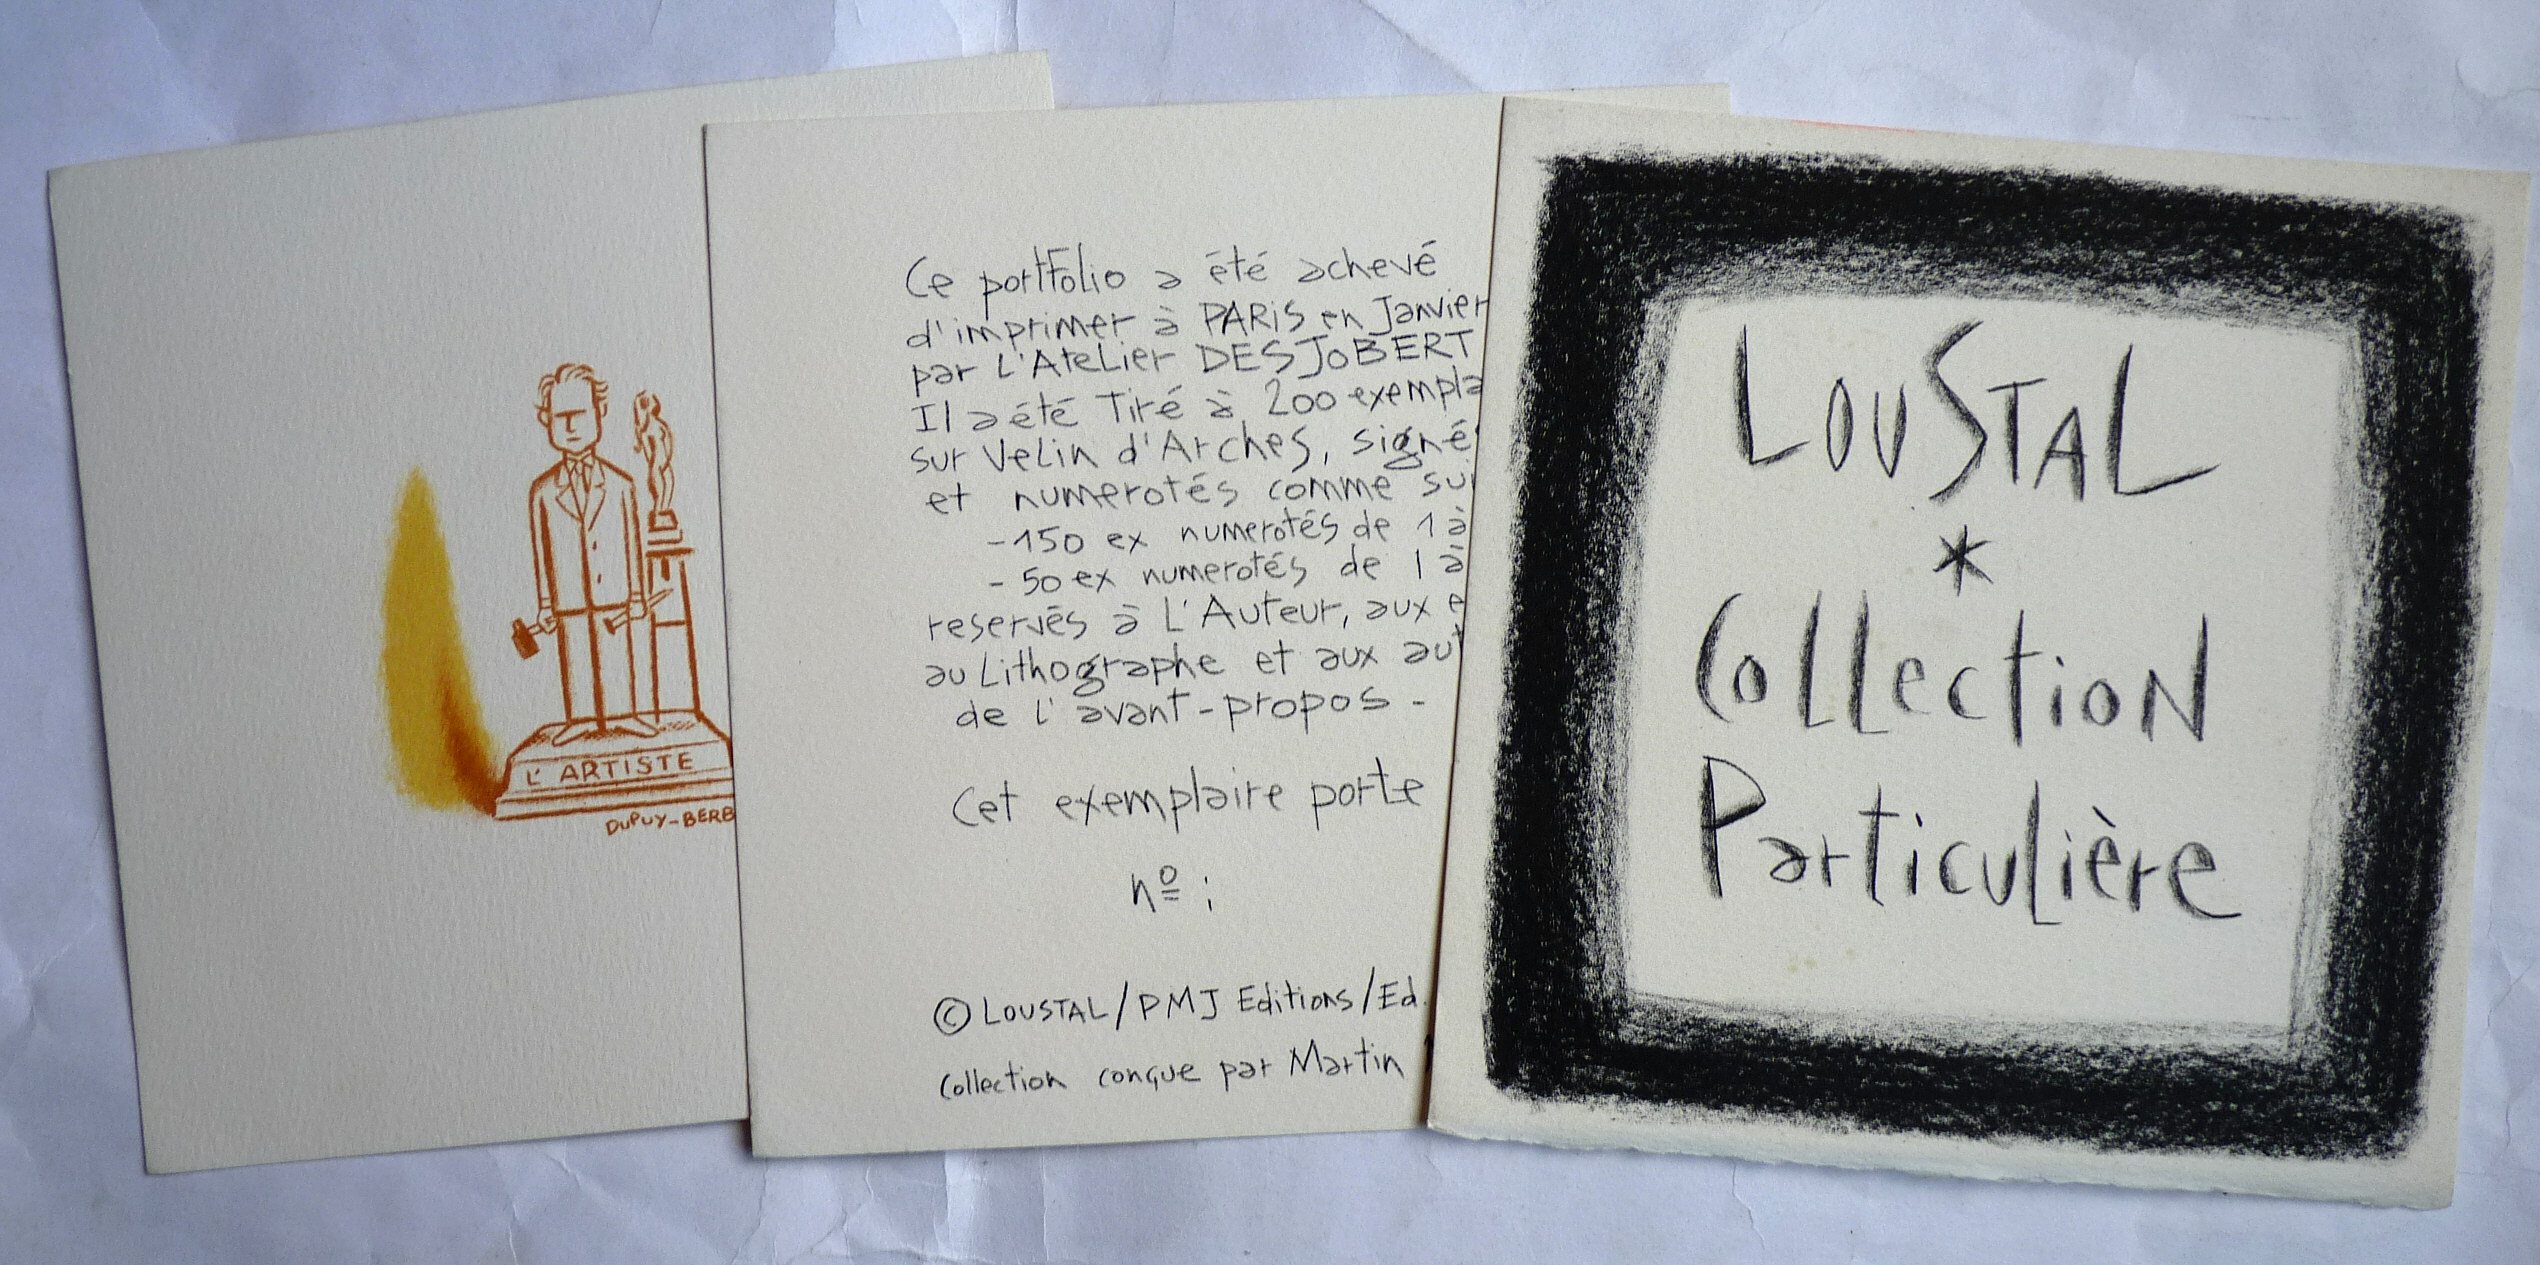 L'ARTISTE
DUPUY-BERB
Ce portfolio a été achevé
d'imprimer à PARIS en Janvier
par L'Atelier DESJOBERT
Il a été Tiré à 200
sur Velin d'Arches,
et numerotés comme
-150 ex numerotés de 1 à
- 50 ex numerotés de I à
reservés à L'Auteur, aux
au Lithographe et aux
de l'avant-propos -
Cet exemplaire porte
nº :
© LOUSTAL/PMJ Editions/Ed.
Collection conçue par Martin
LOUSTAL
*
Collection
Particulière